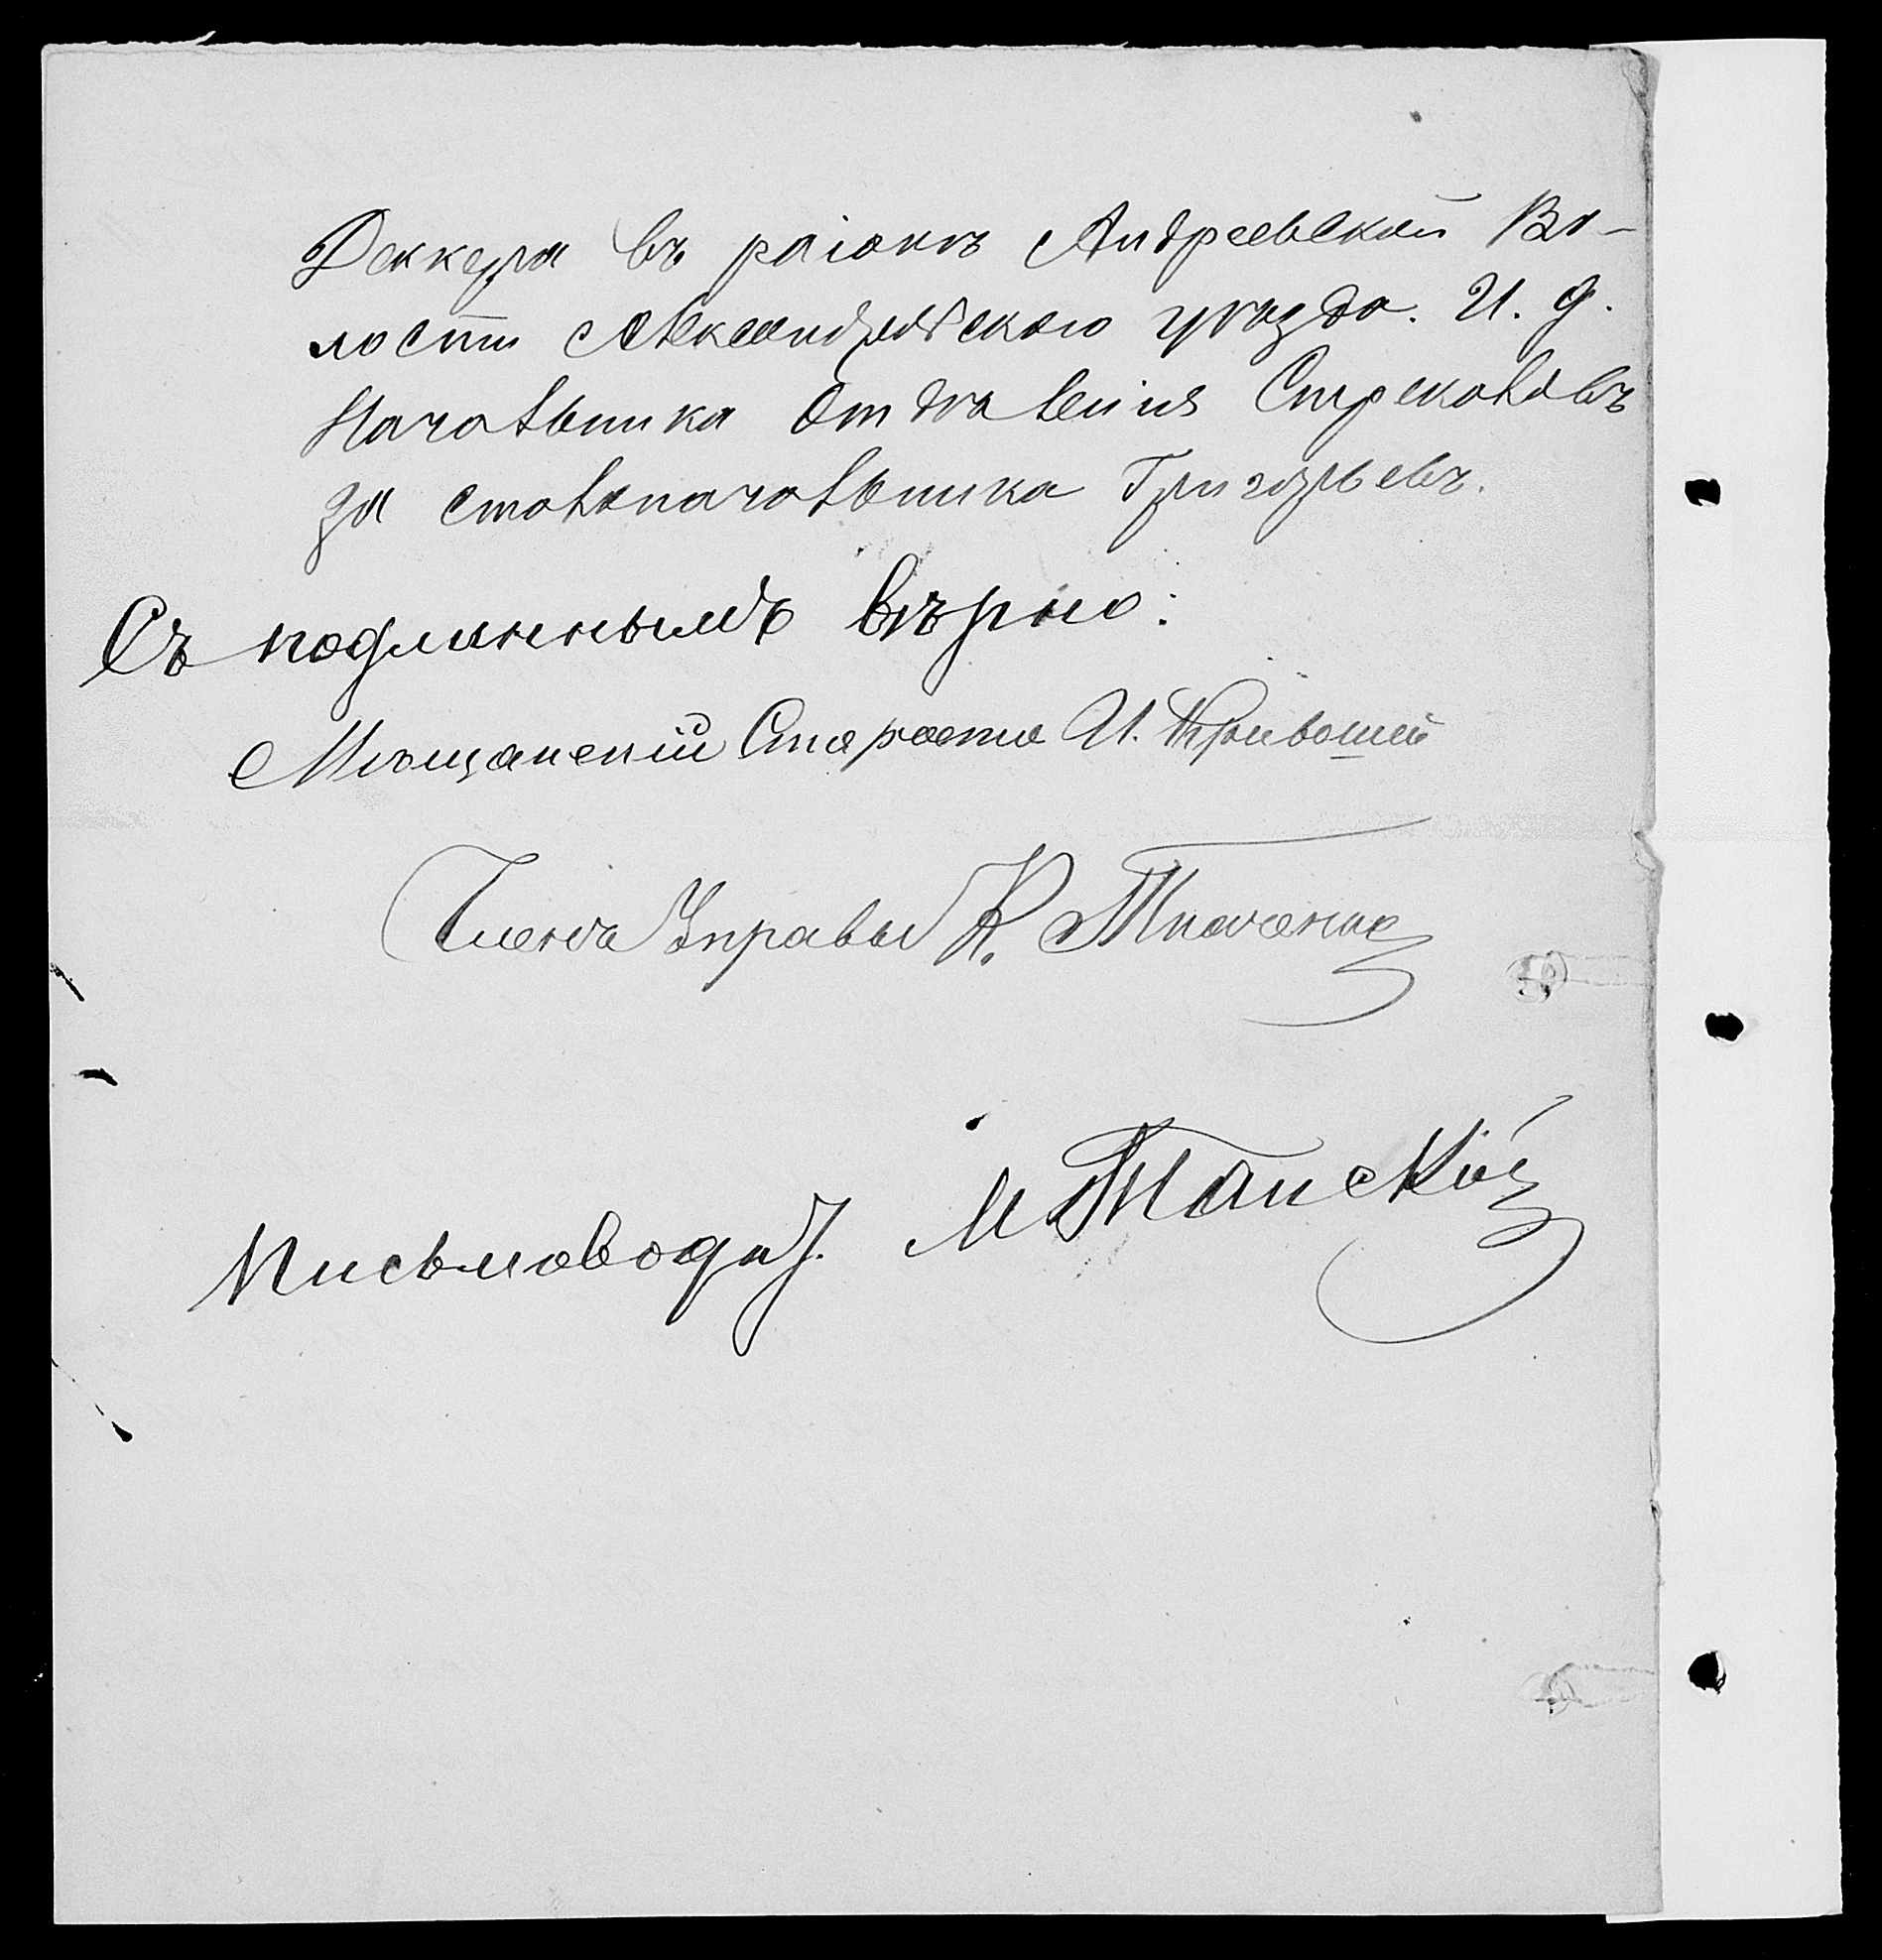 Деккера въ раіонѣ Андреевской Во-
лости Александровскаго уѣзда. И. д.
Начальника Отдѣленія Стрекаловъ
за столоначальника Григорьевъ.
Съ подлиннымъ вѣрно:
Мѣщанскій Староста И. Кривошей
Членъ Управы К. Ткаченко
Письмоводит. М. Танскій